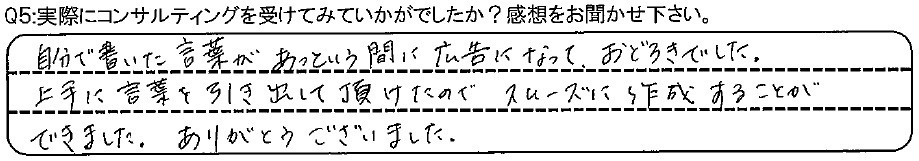 Q5:実際にコンサルティングを受けてみていかがでしたか？感想をお聞かせ下さい。
自分で書いた言葉があっという間に広告になって、おどろきでした。
上手に言葉を引き出して頂けたのでスムーズに作成することが
できました。ありがとうございました。